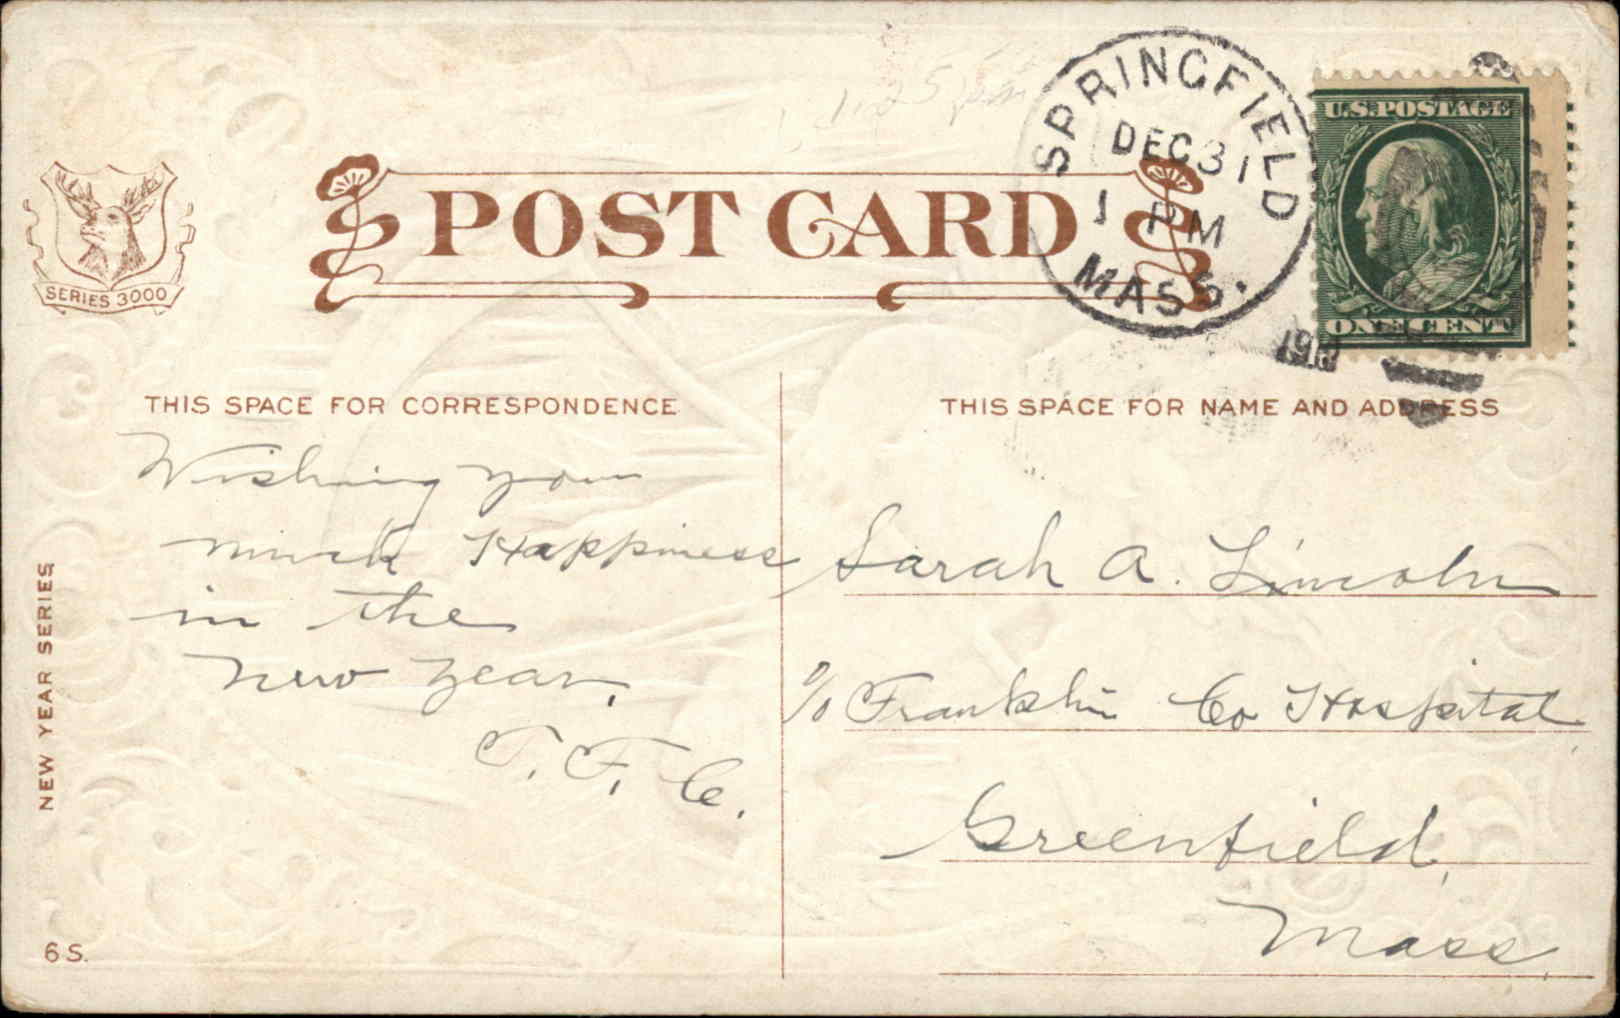 1.25 pm
SPRINGFIELD
DEC 31
1 PM
MASS.
U.S. POSTAGE
ONE CENT
SERIES 3000
POST CARD
THIS SPACE FOR CORRESPONDENCE
THIS SPACE FOR NAME AND ADDRESS
Wishing you
much Happiness
in the
New Year,
T. F. C.
Sarah A. Lincoln
c/o Franklin Co Hospital,
Greenfield,
Mass.
NEW YEAR SERIES
6 S.